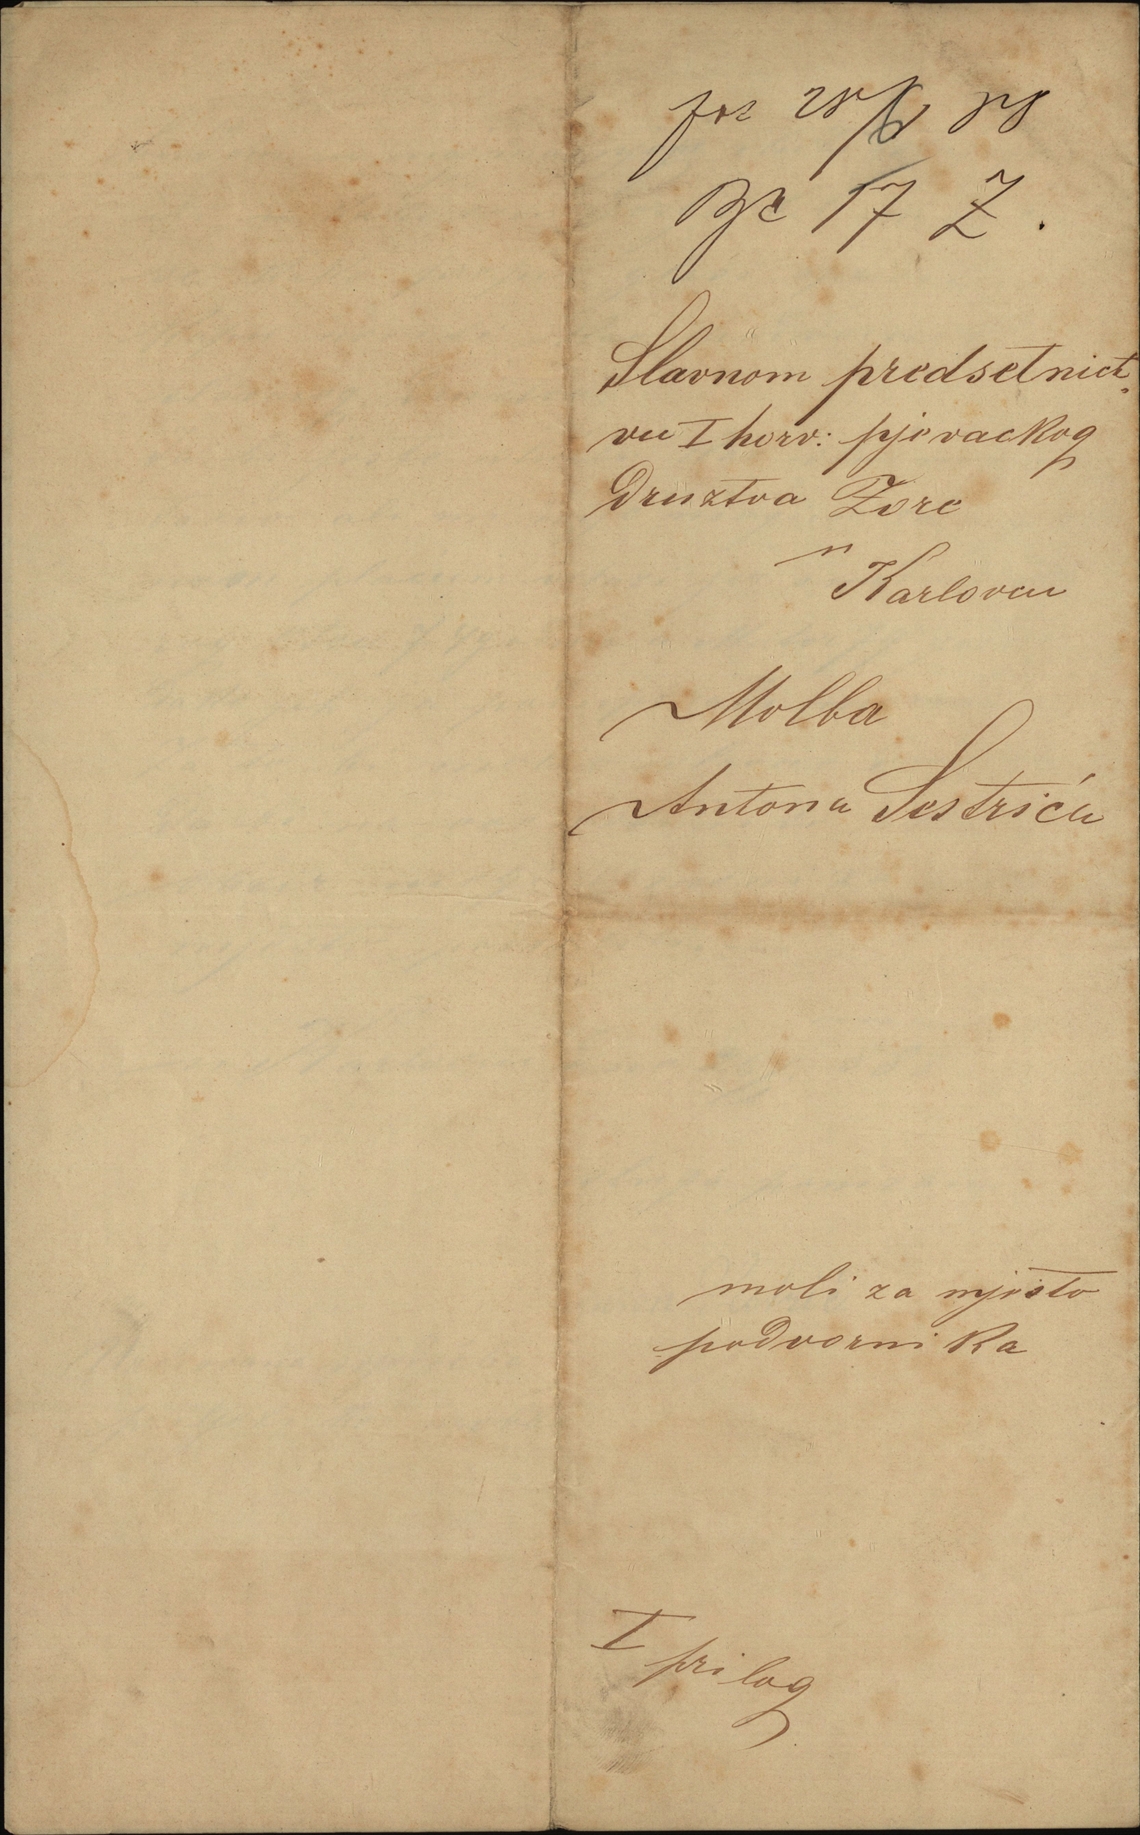 17 Z.
Slavnom predsetnict
vu I horv: pjevackog
Druztva Zore
u
Karlovcu
Molba
Antona Sestrića
moli za mjesto
podvornika
I
prilog